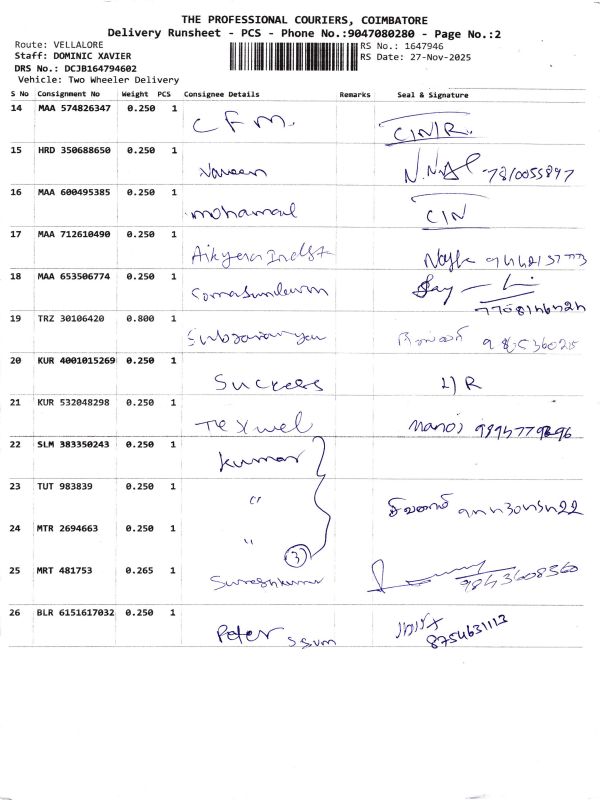 THE PROFESSIONAL COURIERS, COIMBATORE
Delivery Runsheet - PCS - Phone No.:9047080280 - Page No.:2
Route: VELLALORE
RS No.: 1647946
Staff: DOMINIC XAVIER
RS Date: 27-Nov-2025
DRS No.: DCJB164794602
Vehicle: Two Wheeler Delivery
S No Consignment No Weight PCS Consignee Details Remarks Seal & Signature
14 MAA 574826347 0.250 1 CFM.
15 HRD 350688650 0.250 1 Naveen 7810055897
16 MAA 600495385 0.250 1 mohamad
17 MAA 712610490 0.250 1
18 MAA 653506774 0.250 1 Somasundaram
19 TRZ 30106420 0.800 1
20 KUR 4001015269 0.250 1 Success
21 KUR 532048298 0.250 1 Texwel Manoj
22 SLM 383350243 0.250 1 Kumar
23 TUT 983839 0.250 1 "
24 MTR 2694663 0.250 1 " 3
25 MRT 481753 0.265 1 Sureshkumar 9843608360
26 BLR 6151617032 0.250 1 Peter ssvm 8754631113